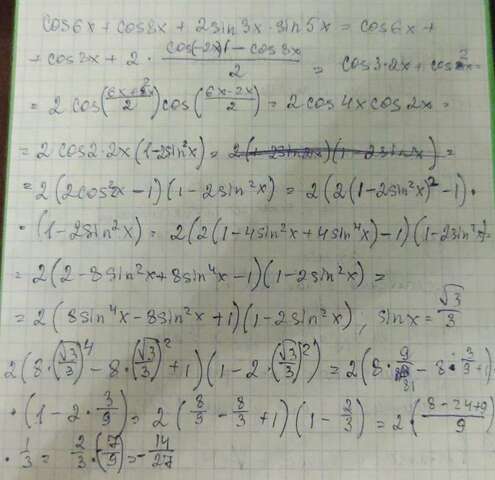 cos6x + cos8x + 2sin3x·sin5x = cos6x +
+ cos8x + 2 · (cos(-2x) - cos8x)/2 = cos3·2x + cos2x =
= 2cos((6x+2x)/2)cos((6x-2x)/2) = 2cos4xcos2x =
= 2cos2·2x(1-2sin²x) = =
= 2(2cos²2x - 1)(1 - 2sin²x) = 2(2(1-2sin²x)² - 1)·
·(1-2sin²x) = 2(2(1-4sin²x+4sin⁴x)-1)(1-2sin²x)=
= 2(2-8sin²x+8sin⁴x-1)(1-2sin²x) =
= 2(8sin⁴x-8sin²x+1)(1-2sin²x); sinx = √3/3
2(8·(√3/3)⁴ - 8·(√3/3)² + 1)(1-2·(√3/3)²) = 2(8·9/81 - 8·3/9+1)·
·(1-2·3/9) = 2(8/9 - 8/3 + 1)(1 - 2/3) = 2·(8-24+9)/9)
·1/3 = 2/3·(7/9) = -14/27